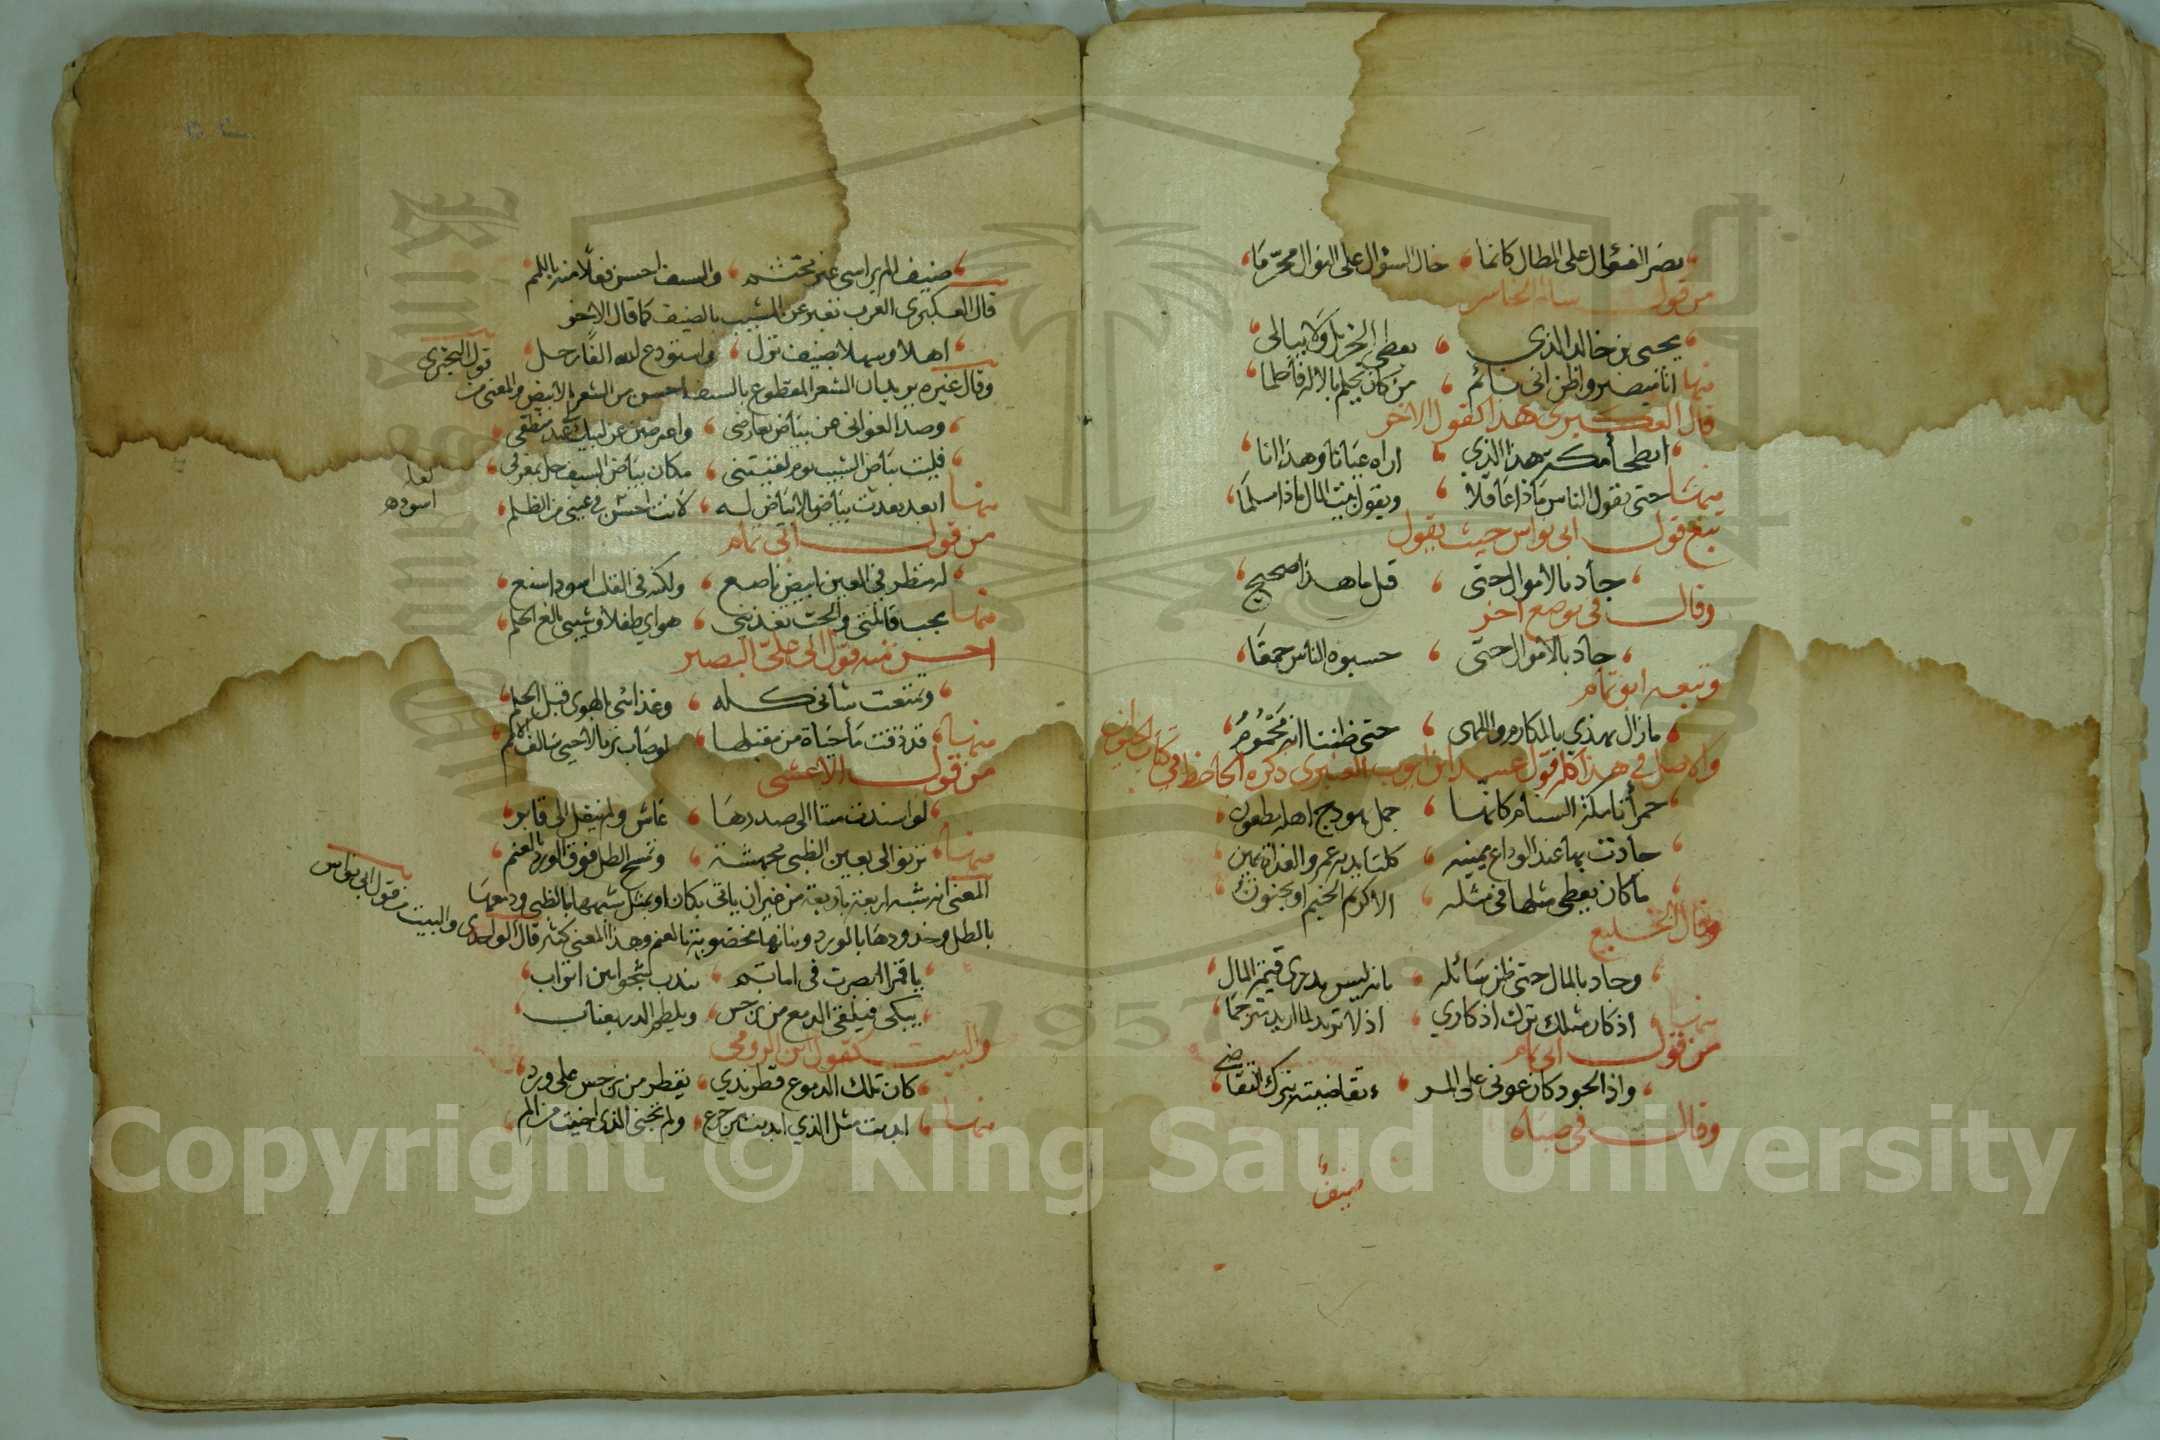 نصر الفعال على المطال كانما ، خال السؤال على النوال محرّمَا
من قول سلم الخاسر
يحيى بن خالد الذي ، يعطى الجزيل ولا يبالى
منها انا مبصر واظن انى نائم ، من كان يحلم بالاله فأحلما
قال العكبرى هذا كقول الاخر
ابطحأ مكة هذا الذي ، اراه عيانا وهذا انا
منها حتى يقول الناس ماذا عاقلا ، ويقول بيت المال ماذا مسلما
تبع قول ابى نواس حيث يقول
جاد بالاموال حتى ، قيل ما هذا صحيح
وقال فى موضع اخر
جاد بالاموال حتى ، حسبوه الناس حمقا
وتبعه ابو تمام
مازال يهذي بالمكارم واللهى ، حتى ظننا انه مَحْمُومُ
والاصل فى هذا كله قول عبيد ابن ايوب العنبرى ذكره الجاحظ فى كتاب الحيوان
حمرأ تامكة السنام كانها ، جمل بهودج اهله مظعون
جادت بها عند الوداع يمينه ، كلتا يديه عمرو الغداة يمين
ما كان يعطى مثلها فى مثله ، الا كريم الخيم او مجنون
وقال الخليع
وجاد بالمال حتى ظن سائله ، بانه ليس يدرى قيمة المال
منها اذكار مثلك ترك اذكاري ، اذ لا تريد لما اريد مترجما
من قول ابى تمام
واذا الجود كان عونى على المر ، ء تقاضيته بترك التقاضى
وقال فى صباه
ضيف
ضيف الم براسى غير محتشم ، والسيف احسن فعلا منه باللمم
قال العكبرى العرب تعبر عن الشيب بالضيف كما قال الاخر
اهلا وسهلا بضيف نزل ، واستودع الله الفًا رحل
وقال غيره بل بياض الشعر المقطوع بالسيف احسن من الشعر الابيض والمعنى من قول البحترى
وصد الغوانى عن بياض عارضى ،
فليت بياض الشيب يوم لقيتنى ، مكان بياض السيف حل بمفرقى
منها ابعد بعدت بياضا لا بياض له ، لانت اسود فى عينى من الظلم
لعله
اسوده
من قول ابى تمام
له منظر فى العين ابيض ناصع ، ولكنه فى القلب اسود اسفع
منها بحب قاتلتى والحب تغذيتى ، هواي طفلا وشيبى بالغ الحلم
احسن منه قول ابى على البصير
وتمتعت شانى كله ، وغذانى الهوى قبل الحلم
منها قد ذقت مأ حياة من مقبلها ، لو صاب تربا لاحيى سالف الامم
من قول الاعشى
لو اسندت ميتا الى صدرها ، عاش ولم ينقل الى قابر
منها ترنو الى بعين الظبى مجهشة ، وتمسح الطل فوق الورد بالعنم
المعنى انه شبه اربعة باربعة من غير ان ياتى بكان او بمثل شبهها بالظبى ودمعها
بالطل وخدودها بالورد وبنانها مخضوبة بالعنم وهذا المعنى كثير قال الواحدى والبيت من قول ابى نواس
يا قمرا ابصرت فى ماتم ، يندب شجوا بين اتراب
يبكى فيلقى الدمع من نرجس ، ويلطم الورد بعناب
والبيت كقول ابن الرومى
كان تلك الدموع قطر ندي ، يقطر من نرجس على ورد
منها ابديت مثل الذي ابديت من جزع ، ولم تجنى الذي اجنيت من الم
Copyright © King Saud University
1957